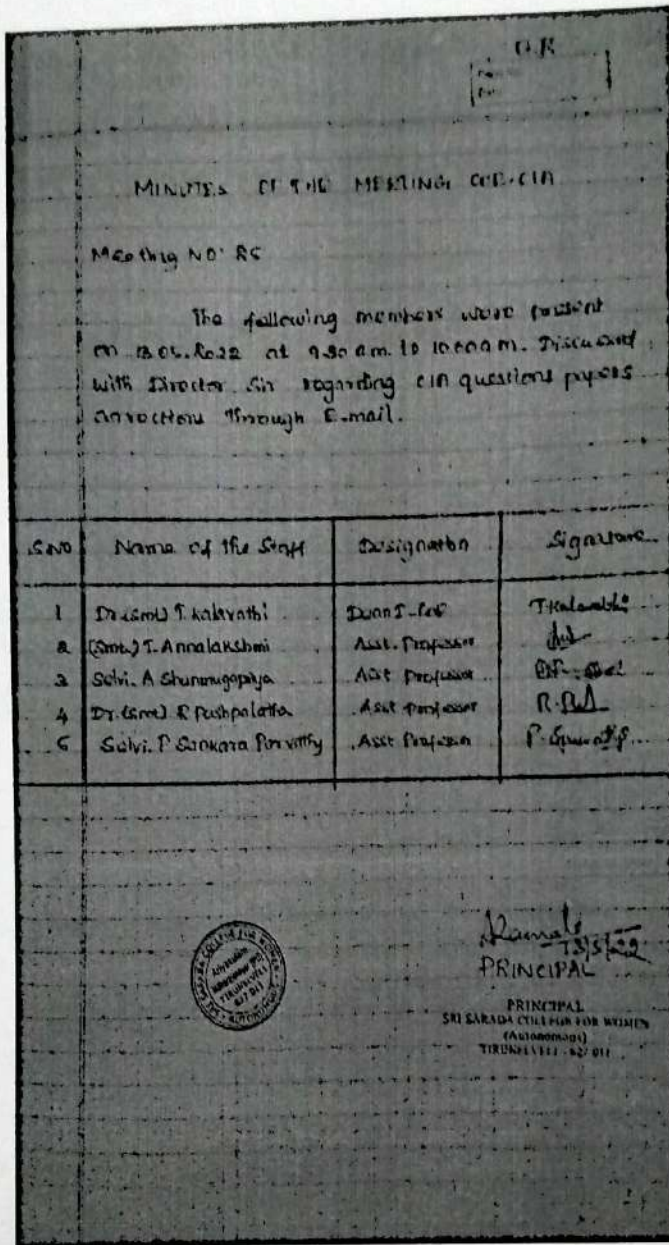 MINUTES OF THE MEETING COE-CIA
Meeting NO: 
The following members were present
on at 9.30 a.m. to 10.00 a.m. Discussed
with Director Sir regarding CIA questions papers
corrections Through E-mail.
S.NO Name of the Staff Designation Signature
1 Dr.(Smt) T. Kalavathi T.Kalavathi
2 (Smt.) T. Annalakshmi Asst. Professor
3 Selvi. A Shunmugapriya Asst Professor
4 Dr.(Smt) R Pushpalatha Asst Professor
5 Selvi. P Sankara Parvathy Asst Professor
SRI SARADA COLLEGE FOR WOMEN
TIRUNELVELI
627 011
13/5/22
PRINCIPAL
PRINCIPAL
SRI SARADA COLLEGE FOR WOMEN
(Autonomous)
TIRUNELVELI - 627 011